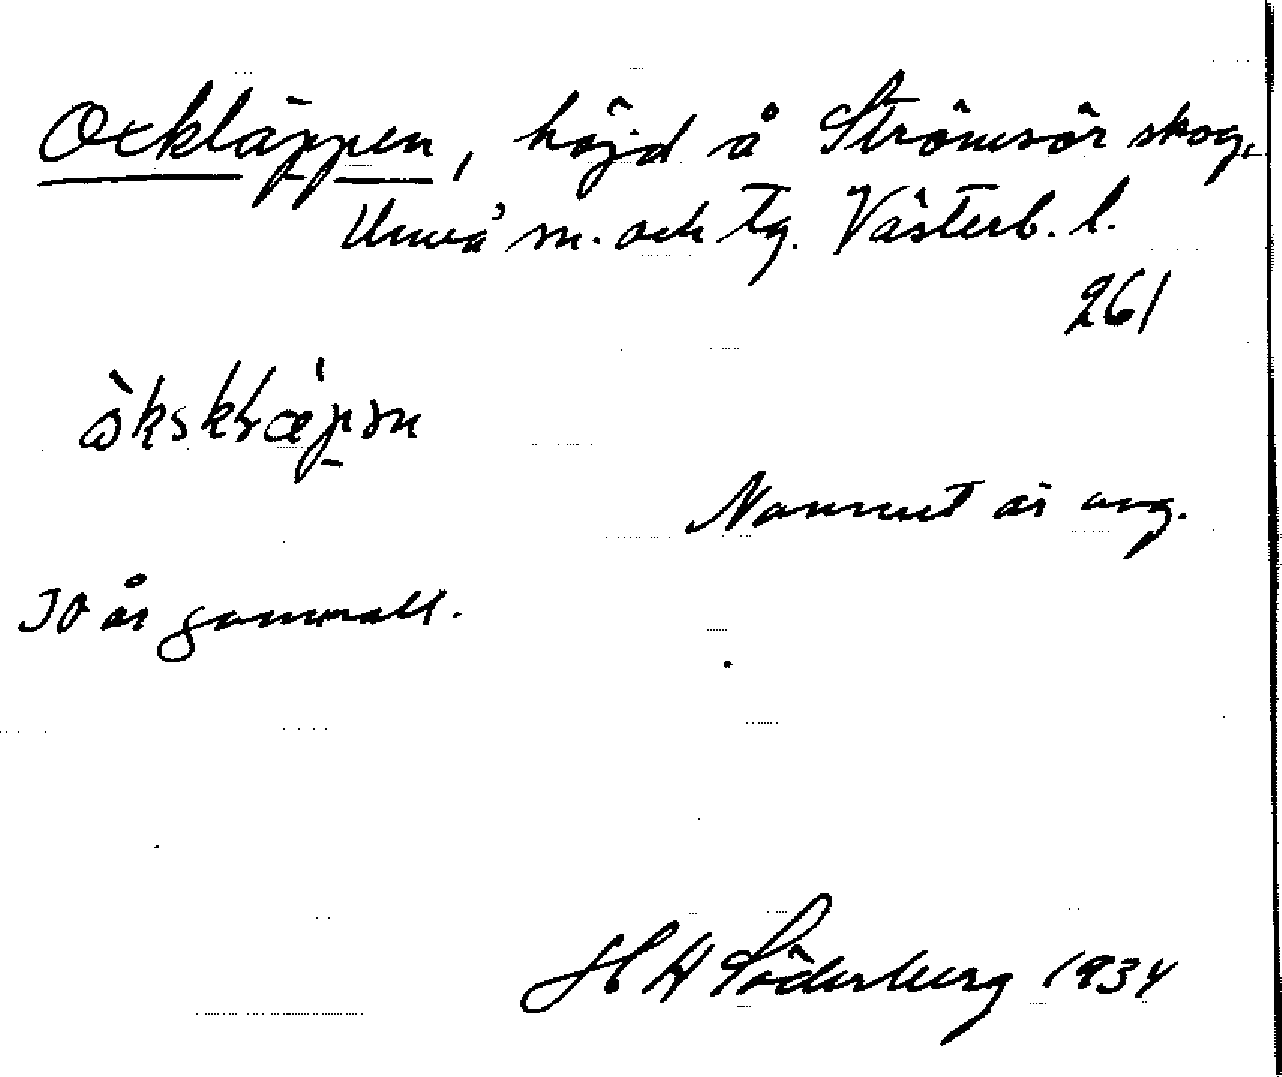 Oxkläppen, höjd å Strömsör skog,
Umeå sn. och tg. Västerb. l.
261
Namnet är omg.
30 år gammalt.
H H Söderberg 1934